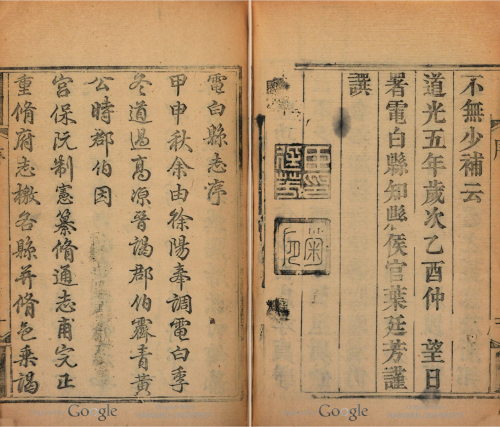 不無少補云
道光五年歲次乙酉仲 望日
署電白縣知縣侯官葉廷芳謹
譔
電白縣志序
甲申秋余由徐陽奉調電白季
冬道過高凉晉謁郡伯霽青黃
公時郡伯因
宮保阮制憲纂脩通志甫完正
重脩府志檄各縣并脩邑乘謁
Google
Google